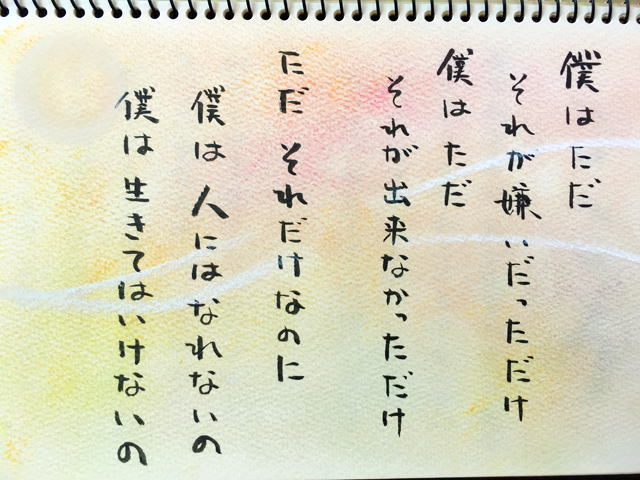 僕はただ
それが嫌いだっただけ
僕はただ
それが出来なかっただけ
ただ それだけなのに
僕は人にはなれないの
僕は生きてはいけないの